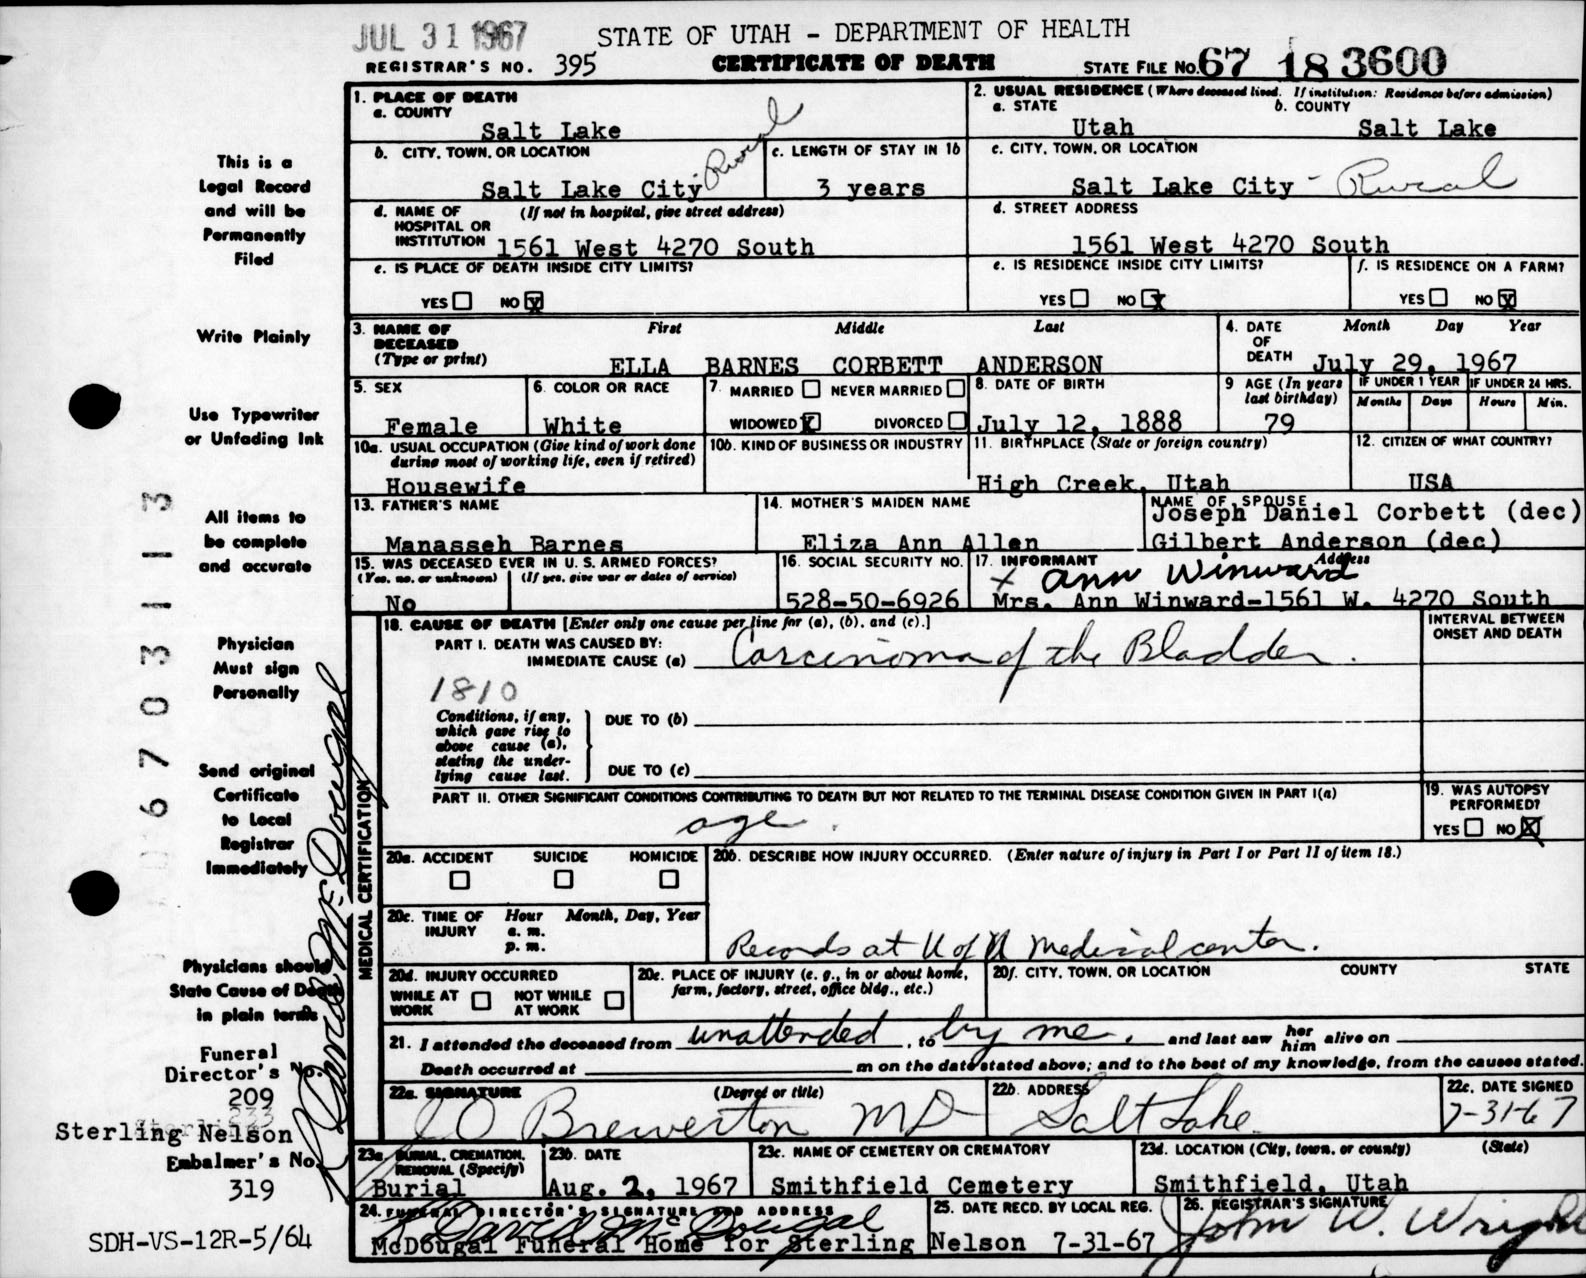 JUL 31 1967
STATE OF UTAH - DEPARTMENT OF HEALTH
REGISTRAR'S NO. 395
CERTIFICATE OF DEATH
STATE FILE NO. 67 18 3600
1. PLACE OF DEATH
a. COUNTY
Salt Lake
2. USUAL RESIDENCE (Where deceased lived. If institution: Residence before admission)
a. STATE b. COUNTY
Utah Salt Lake
b. CITY, TOWN, OR LOCATION
Salt Lake City - Rural
c. LENGTH OF STAY IN 1b
3 years
c. CITY, TOWN, OR LOCATION
Salt Lake City - Rural
d. NAME OF HOSPITAL OR INSTITUTION (If not in hospital, give street address)
1561 West 4270 South
d. STREET ADDRESS
1561 West 4270 South
e. IS PLACE OF DEATH INSIDE CITY LIMITS?
YES NO X
e. IS RESIDENCE INSIDE CITY LIMITS?
YES NO X
f. IS RESIDENCE ON A FARM?
YES NO X
3. NAME OF DECEASED (Type or print)
First Middle Last
ELLA BARNES CORBETT ANDERSON
4. DATE OF DEATH
Month Day Year
July 29, 1967
5. SEX
Female
6. COLOR OR RACE
White
7. MARRIED NEVER MARRIED
WIDOWED X DIVORCED
8. DATE OF BIRTH
July 12, 1888
9 AGE (In years last birthday)
79
IF UNDER 1 YEAR
Months Days
IF UNDER 24 HRS.
Hours Min.
10a. USUAL OCCUPATION (Give kind of work done during most of working life, even if retired)
Housewife
10b. KIND OF BUSINESS OR INDUSTRY
11. BIRTHPLACE (State or foreign country)
High Creek, Utah
12. CITIZEN OF WHAT COUNTRY?
USA
13. FATHER'S NAME
Manasseh Barnes
14. MOTHER'S MAIDEN NAME
Eliza Ann Allen
NAME OF SPOUSE
Joseph Daniel Corbett (dec)
Gilbert Anderson (dec)
15. WAS DECEASED EVER IN U. S. ARMED FORCES?
(Yes, no, or unknown) (If yes, give war or dates of service)
No
16. SOCIAL SECURITY NO.
528-50-6926
17. INFORMANT Address
x Ann Winward
Mrs. Ann Winward-1561 W. 4270 South
MEDICAL CERTIFICATION
18. CAUSE OF DEATH [Enter only one cause per line for (a), (b), and (c).]
INTERVAL BETWEEN ONSET AND DEATH
PART I. DEATH WAS CAUSED BY:
IMMEDIATE CAUSE (a) Carcinoma of the Bladder.
1810
Conditions, if any, which gave rise to above cause (a), stating the underlying cause last.
DUE TO (b)
DUE TO (c)
PART II. OTHER SIGNIFICANT CONDITIONS CONTRIBUTING TO DEATH BUT NOT RELATED TO THE TERMINAL DISEASE CONDITION GIVEN IN PART I(a)
age.
19. WAS AUTOPSY PERFORMED?
YES NO X
20a. ACCIDENT SUICIDE HOMICIDE
20b. DESCRIBE HOW INJURY OCCURRED. (Enter nature of injury in Part I or Part II of item 18.)
20c. TIME OF INJURY Hour Month, Day, Year
a. m.
p. m.
Records at U of U Medical center.
20d. INJURY OCCURRED
WHILE AT WORK NOT WHILE AT WORK
20e. PLACE OF INJURY (e. g., in or about home, farm, factory, street, office bldg., etc.)
20f. CITY, TOWN, OR LOCATION COUNTY STATE
21. I attended the deceased from unattended, to by me, and last saw her him alive on
Death occurred at m on the date stated above; and to the best of my knowledge, from the causes stated.
22a. SIGNATURE (Degree or title)
Brewerton MD
22b. ADDRESS
Salt Lake
22c. DATE SIGNED
7-31-67
23a. BURIAL, CREMATION, REMOVAL (Specify)
Burial
23b. DATE
Aug. 2, 1967
23c. NAME OF CEMETERY OR CREMATORY
Smithfield Cemetery
23d. LOCATION (City, town, or county) (State)
Smithfield, Utah
24. FUNERAL DIRECTOR'S SIGNATURE AND ADDRESS
R David McDougal
McDougal Funeral Home for Sterling Nelson
25. DATE RECD. BY LOCAL REG.
7-31-67
26. REGISTRAR'S SIGNATURE
John W. Wright
This is a
Legal Record
and will be
Permanently
Filed
Write Plainly
Use Typewriter
or Unfading Ink
All items to
be complete
and accurate
Physician
Must sign
Personally
Send original
Certificate
to Local
Registrar
Immediately
Physicians should
State Cause of Death
in plain terms
Funeral
Director's No.
209
Sterling Nelson
Embalmer's No.
319
SDH-VS-12R-5/64
R David McDougal